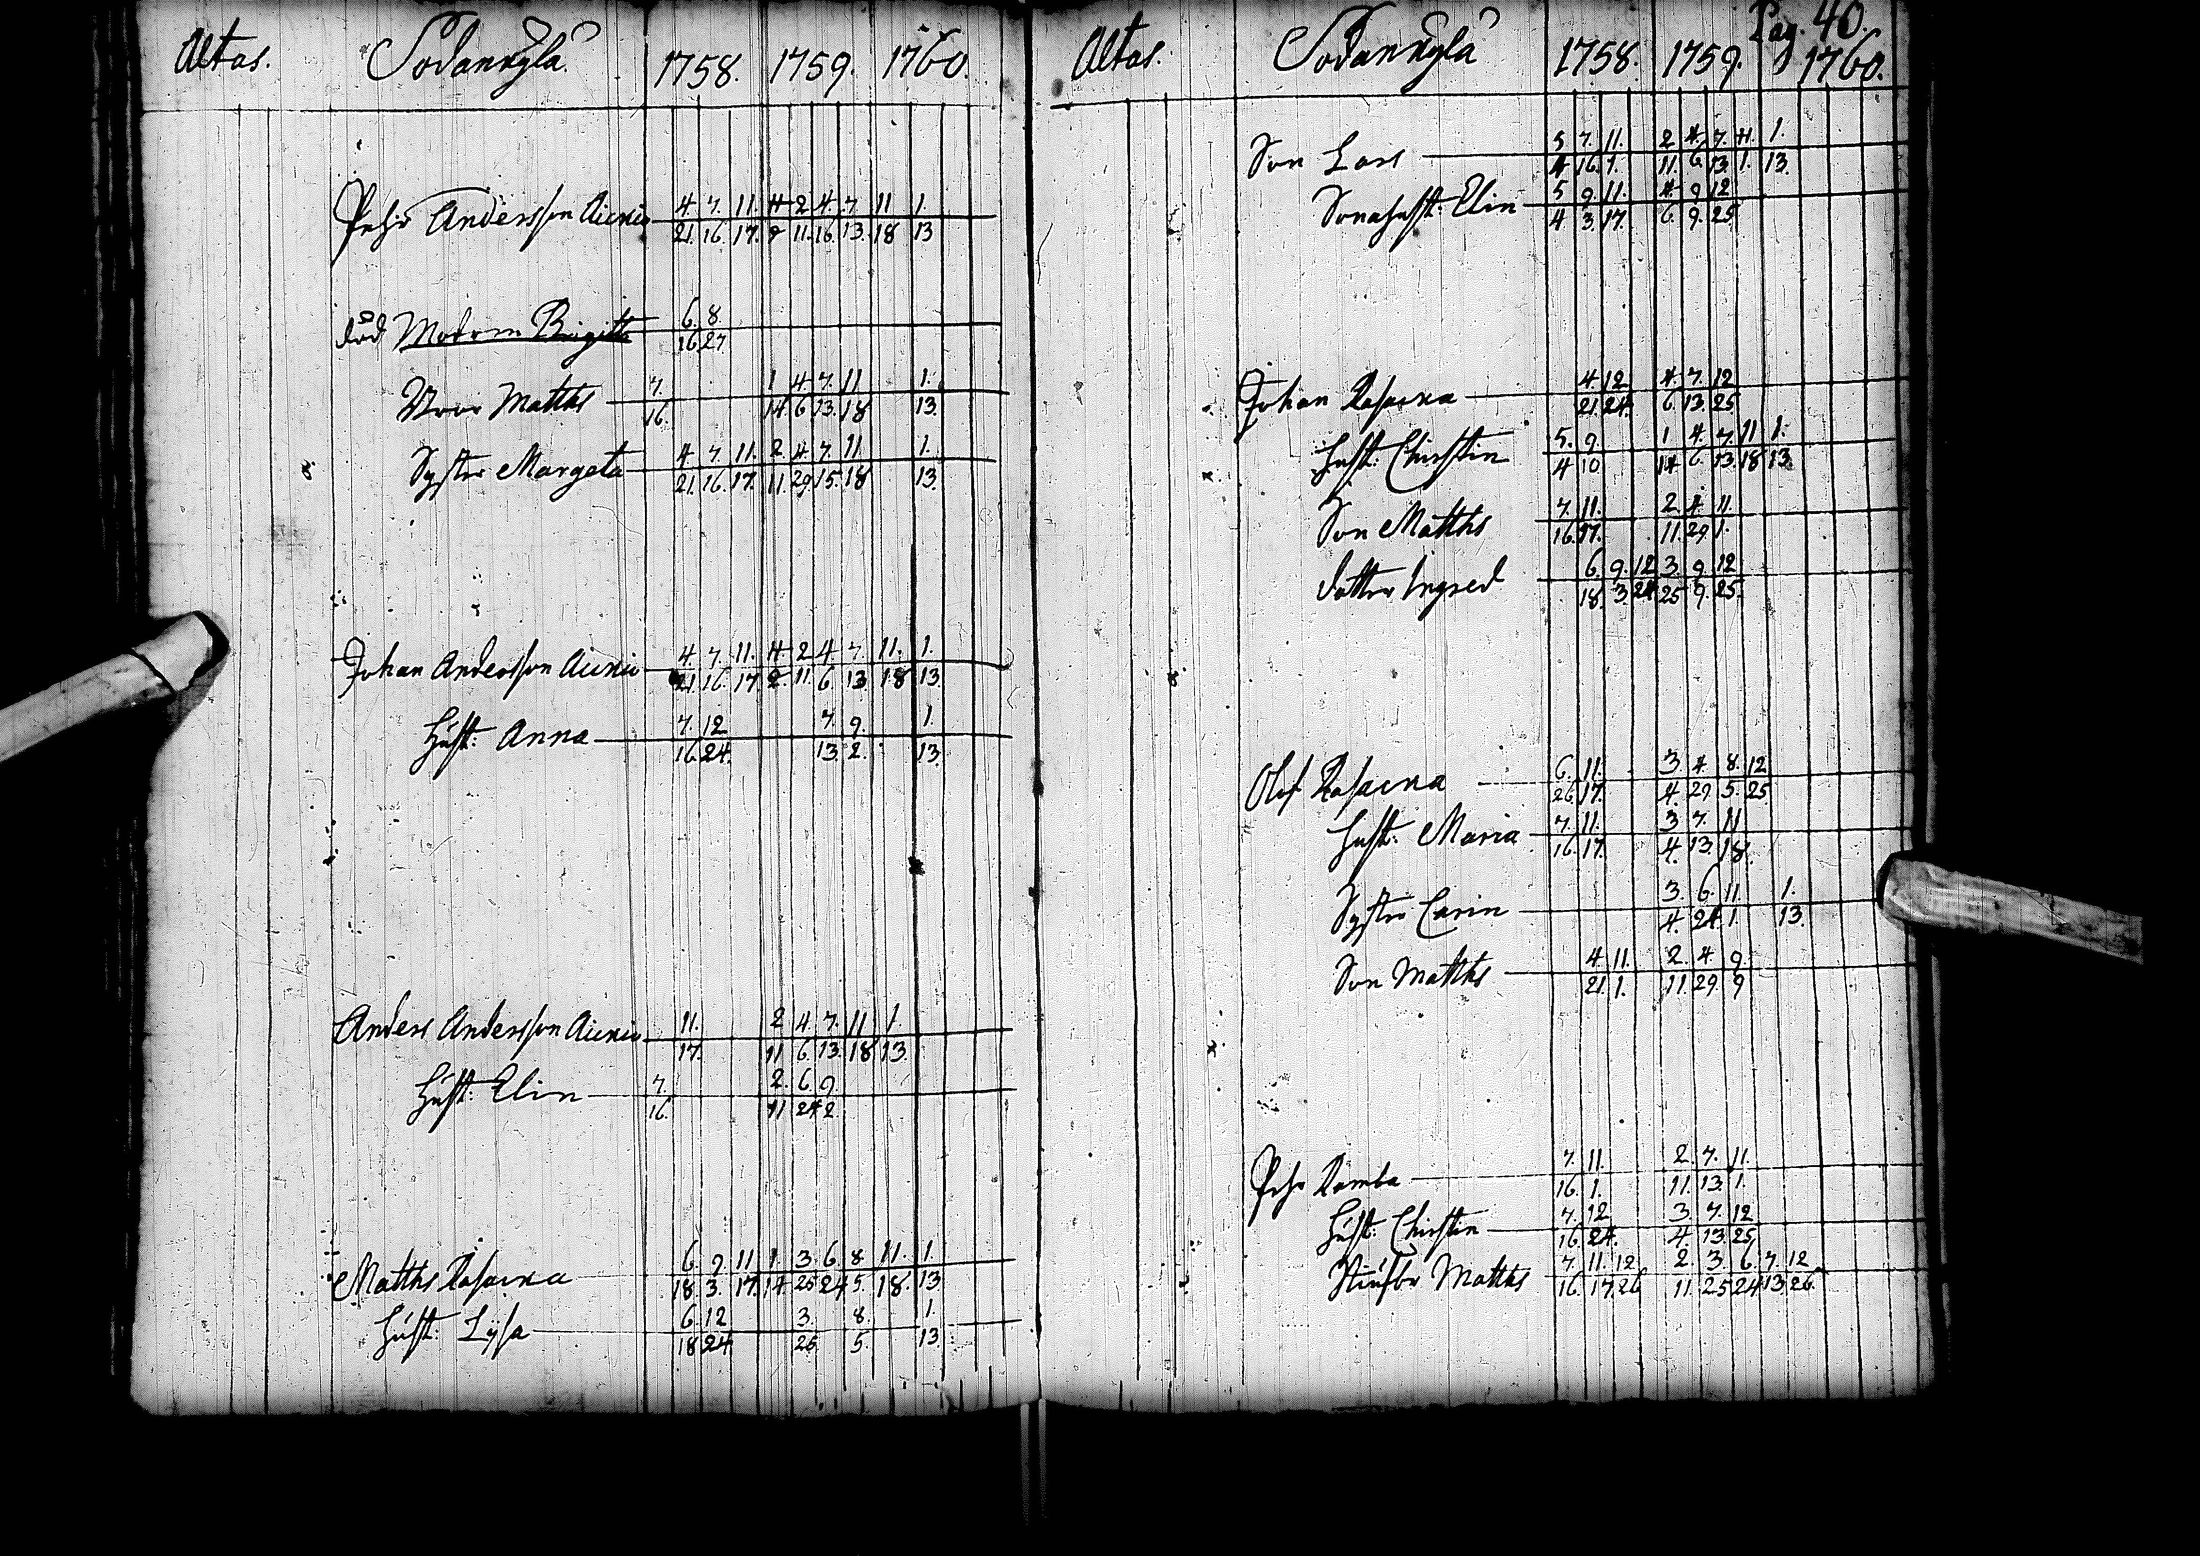 Ætas. Sodankylä 1758. 1759. 1760.
Pehr Andersson Aikio 4. 7. 11. 11 2 4. 7. 11 1.
21. 16. 17. 2 11. 16. 13. 18 13
död Modren Brigitta 6. 8.
16. 27.
Bror Matths 7. 1 4. 7. 11 1.
16. 14 6. 13. 18 13.
Syster Margeta 4. 7. 11. 2 4. 7. 11 1.
21. 16. 17. 11. 29. 15. 18 13.
Johan Andersson Aikio 4. 7. 11. 11 2 4 7. 11. 1.
21. 16. 17. 2. 11. 6. 13. 18 13.
Hust: Anna 7. 12 7. 9. 1.
16. 24. 13. 2. 13.
Anders Andersson Aikio 11. 2 4. 7. 11 1.
17. 11 6. 13. 18 13.
Hust: Elin 7. 2. 6. 9.
16. 11 24 2.
Matths 6. 9. 11 1. 3. 6. 8. 11. 1.
18. 3. 17. 14. 25 24 5. 18. 13.
Hust: Lysa 6. 12 3. 8. 1.
18 24. 25. 5. 13.
Pag. 40.
Ætas. Sodankylä 1758. 1759. 1760.
Son Lars 5 7. 11. 2 4. 7. 11 1.
4 16. 1. 11. 6. 13. 1. 13.
Sonahust: Elin 5 9. 11. 4. 9. 12
4 3. 17. 6. 9. 25.
Johan 4. 12 4. 7. 12
21. 24. 6. 13. 25
Hust: Chirstin 5. 9. 1 4. 7. 11 1.
4 10 14 6. 13. 18 13.
Son Matths 7. 11. 2. 4. 11.
16. 17. 11. 29. 1.
dotter Ingred 6. 9. 12 3. 9. 12
18. 3. 24 25 9. 25.
Olof 6. 11. 3. 4. 8. 12
26. 17. 4. 29. 5. 25.
Hust: Maria 7. 11. 3 7. 11
16. 17. 4. 13. 18.
Syster Carin 3. 6. 11. 1.
4. 24. 1. 13.
Son Matths 4 11. 2. 4. 9.
21. 1. 11. 29. 9
Pehr 7. 11. 2. 7. 11.
16. 1. 11. 13. 1.
Hust: Chirstin 7. 12 3. 7. 12
16. 24. 4. 13. 25.
Matths 7. 11. 12 2. 3. 6. 7. 12
16. 17. 26 11. 25 24 13. 26.